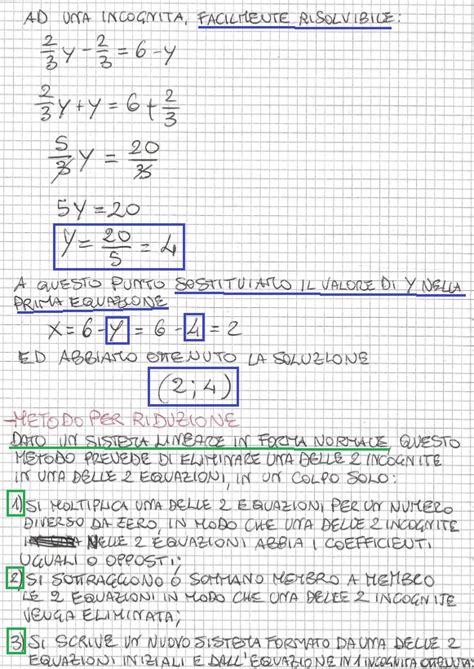 AD UNA INCOGNITA, FACILMENTE RISOLVIBILE:
2/3 y - 2/3 = 6 - y
2/3 y + y = 6 + 2/3
5/3 y = 20/3
5y = 20
y = 20/5 = 4
A QUESTO PUNTO SOSTITUIAMO IL VALORE DI Y NELLA
PRIMA EQUAZIONE
X = 6 - y = 6 - 4 = 2
ED ABBIAMO OTTENUTO LA SOLUZIONE
(2; 4)
→METODO PER RIDUZIONE
DATO UN SISTEMA LINEARE IN FORMA NORMALE QUESTO
METODO PREVEDE DI ELIMINARE UNA DELLE 2 INCOGNITE
IN UNA DELLE 2 EQUAZIONI, IN UN COLPO SOLO:
1) SI MOLTIPLICA UNA DELLE 2 EQUAZIONI PER UN NUMERO
DIVERSO DA ZERO, IN MODO CHE UNA DELLE 2 INCOGNITE
NELLE 2 EQUAZIONI ABBIA I COEFFICIENTI
UGUALI O OPPOSTI;
2) SI SOTTRAGGONO O SOMMANO MEMBRO A MEMBRO
LE 2 EQUAZIONI IN MODO CHE UNA DELLE 2 INCOGNITE
VENGA ELIMINATA;
3) SI SCRIVE UN NUOVO SISTEMA FORMATO DA UNA DELLE 2
EQUAZIONI INIZIALI E DALL'EQUAZIONE IN 1 INCOGNITA